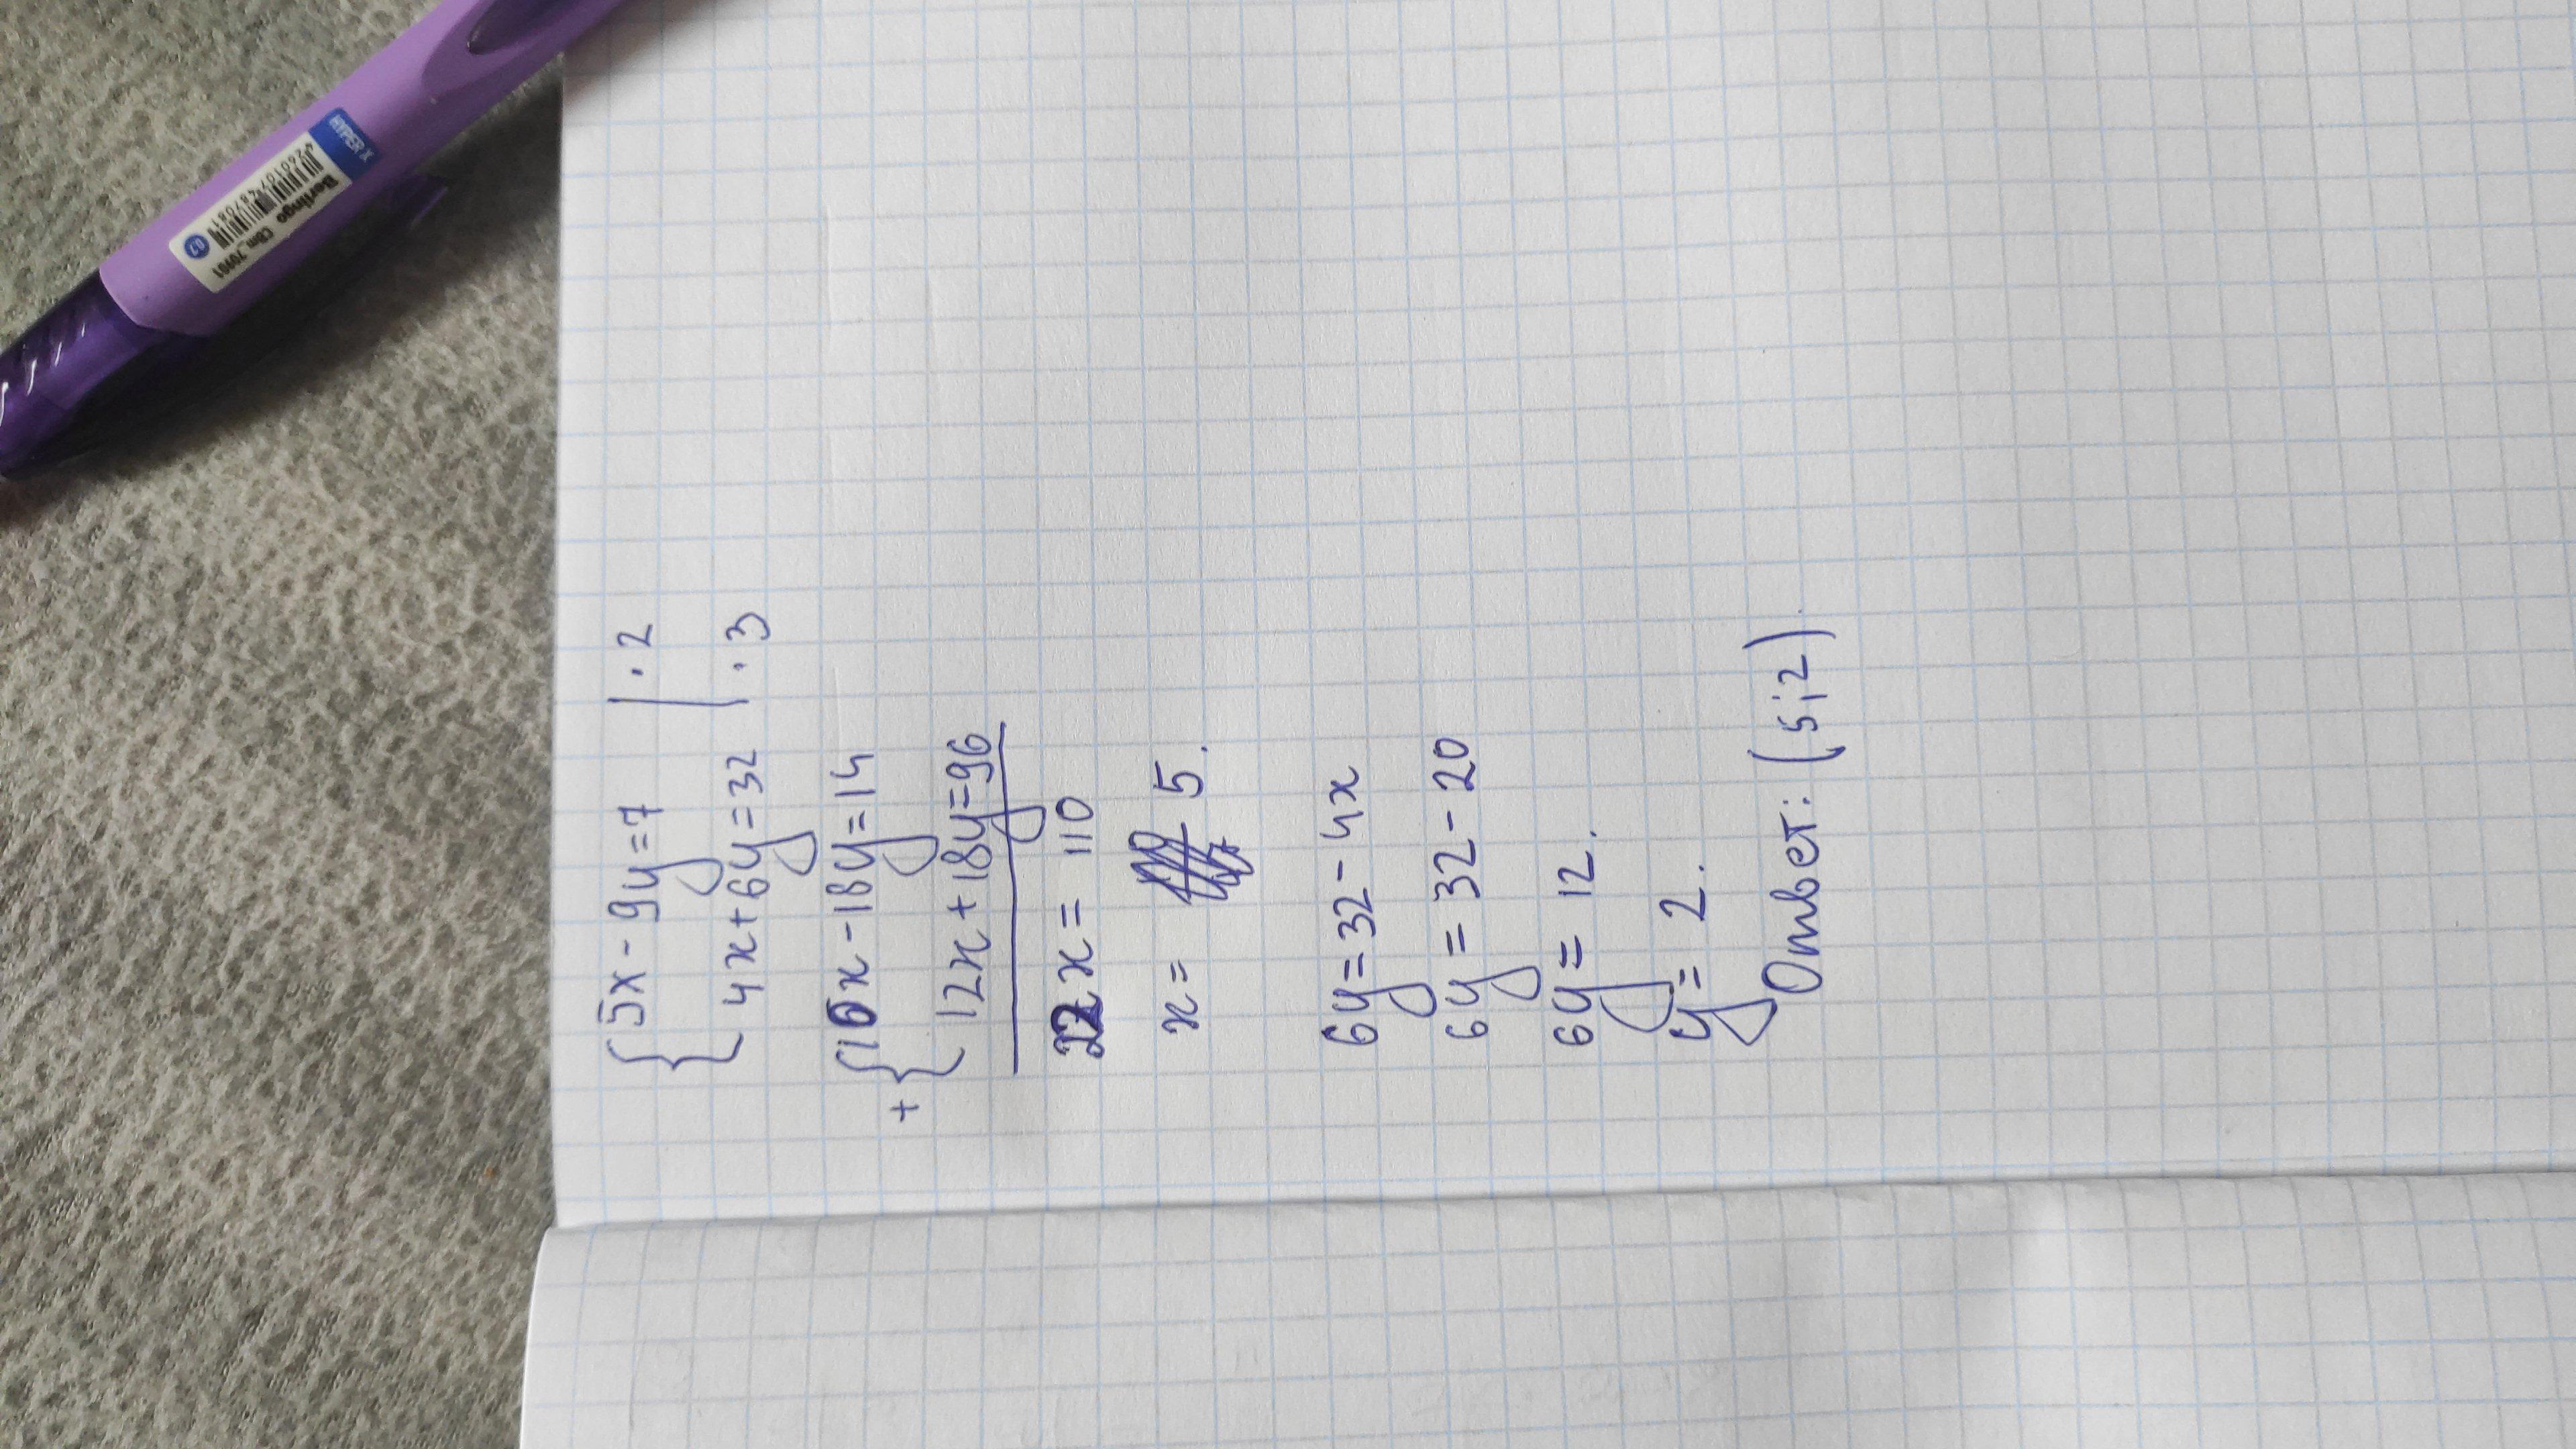 {5x-9y=7 |·2
4x+6y=32 |·3
+{10x-18y=14
12x+18y=96
22x=110
x= 5.
6y=32-4x
6y=32-20
6y=12.
y=2.
Ответ: (5;2).
HYPER X
Berlingo CBm_70901
0.7